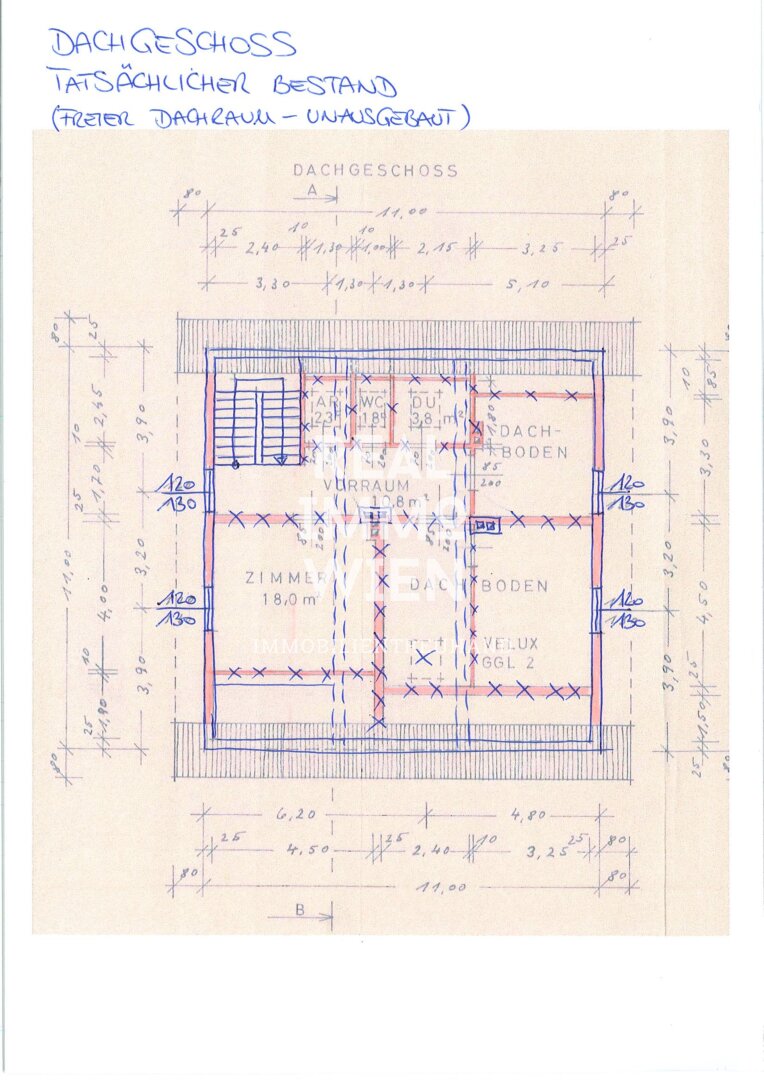 DACHGESCHOSS
TATSÄCHLICHER BESTAND
(FREIER DACHRAUM – UNAUSGEBAUT)
DACHGESCHOSS
A
80
11,00
80
25
2,40
10
1,30
10
1,00
2,15
3,25
25
3,30
1,30
1,30
5,10
80
25
11,00
80
25
10
2,45
1,20
25
4,00
10
1,90
25
3,90
3,20
3,90
AR
2,3
WC
1,8
DU
3,8 m²
1,80
DACH-
BODEN
85
200
VORRAUM
10,8 m²
120
130
120
130
85
200
85
200
ZIMMER
18,0 m²
DACHBODEN
120
130
120
130
VELUX
GGL 2
REAL
IMMO
WIEN
3,90
3,20
3,90
10
85
3,30
4,50
25
1,50
25
80
6,20
4,80
25
4,50
25
2,40
10
3,25
25
80
80
11,00
80
B